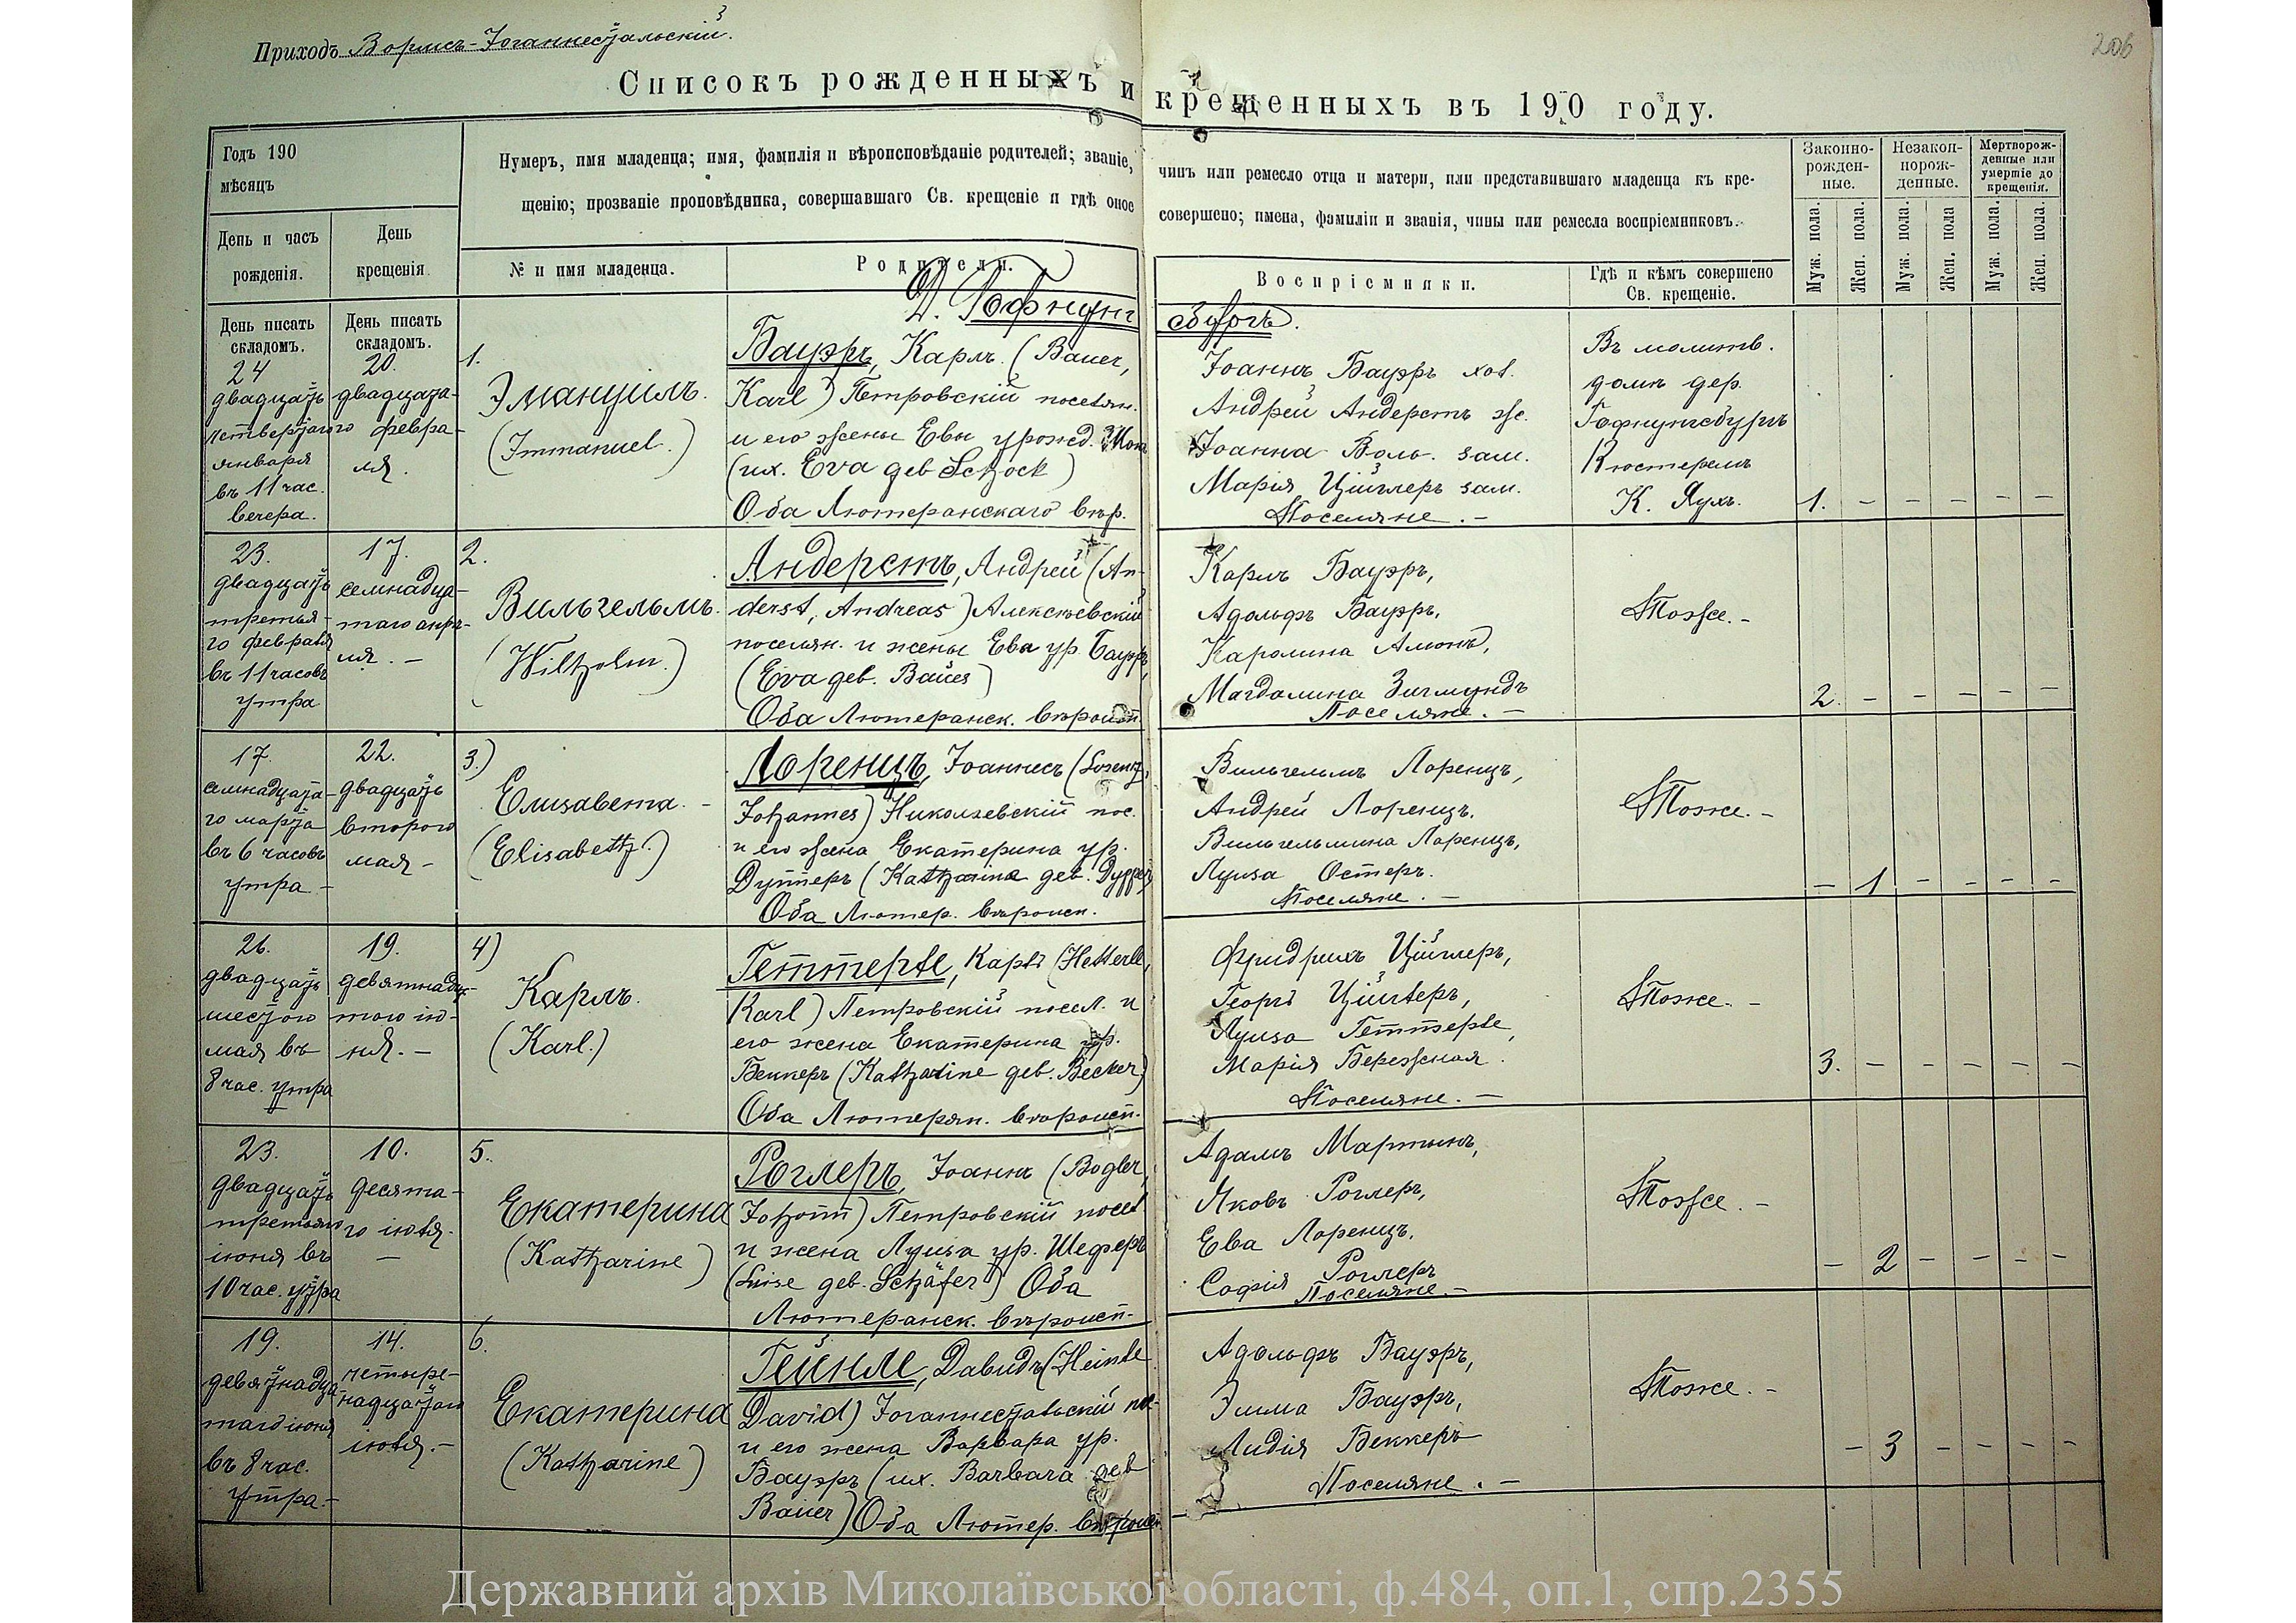 Приходъ Вормсъ-Іоганнестальскій.
206
Списокъ рожденныхъ и крещенныхъ въ 190 году.
Годъ 190
мѣсяцъ
День и часъ рожденія.
День крещенія.
Нумеръ, имя младенца; имя, фамилія и вѣроисповѣданіе родителей; званіе, чинъ или ремесло отца и матери, или представившаго младенца къ кре-
щенію; прозваніе проповѣдника, совершавшаго Св. крещеніе и гдѣ оное совершено; имена, фамиліи и званія, чины или ремесла воспріемниковъ.
№ и имя младенца.
Родители.
Воспріемники.
Гдѣ и кѣмъ совершено
Св. крещеніе.
Законно-
рожден-
ные.
Незакон-
норож-
денные.
Мертворож-
денные или
умершіе до
крещенія.
Муж. пола.
Жен. пола.
Муж. пола.
Жен. пола
Муж. пола.
Жен. пола.
День писать
складомъ.
День писать
складомъ.
Д. Гофнунгсбургъ.
24
двадцать
четвертаго
января
въ 11 час.
вечера.
20.
двадцата-
го февра-
ля.
1.
Эмануилъ.
(Immanuel.)
Бауэръ, Карлъ (Bauer,
Karl) Петровскій поселян.
и его жены Евы урожд. Шок
(их. Eva geb Schock)
Оба Лютеранскаго вѣр.
Іоаннъ Бауэръ хол.
Андрей Андерстъ ж.
Іоанна Воль. зам.
Марія Циглеръ зам.
Поселяне. -
Въ молитв.
домѣ дер.
Гофнунгсбургъ
Кюстеремъ
К. Яухъ.
1. - - - - -
23.
двадцать
третья-
го февраля
въ 11 часовъ
утра
17.
семнадца-
таго апрѣ-
ля. -
2.
Вильгельмъ.
(Wilhelm.)
Андерстъ, Андрей (An-
derst, Andreas) Алексѣевскій
поселян. и жены Ева ур. Бауэръ,
(Eva geb. Bauer)
Оба Лютеранск. вѣроисп.
Карлъ Бауэръ,
Адольфъ Бауэръ,
Каролина Амонъ,
Магдалина Зигмундъ
Поселяне. -
Тоже. -
2. - - - - -
17.
семнадцата-
го марта
въ 6 часовъ
утра -
22.
двадцать
второго
мая -
3.)
Елизавета. -
(Elisabeth.)
Лоренцъ, Іоаннесъ (Lorenz,
Johannes) Николаевскій пос.
и его жена Екатерина ур.
Дуттеръ (Katharina geb.
Оба Лютер. вѣроисп.
Вильгельмъ Лоренцъ,
Андрей Лоренцъ.
Вильгельмина Лоренцъ,
Луиза Остеръ.
Поселяне. -
Тоже. -
- 1 - - - -
26.
двадцать
шестого
мая въ
8 час. утра
19.
девятнадца-
таго ію-
ня. -
4)
Карлъ.
(Karl.)
Геттерле, Карлъ (Hetterle,
Karl) Петровскій посел. и
его жена Екатерина ур.
Беккеръ (Katharine geb. Becker)
Оба Лютеран. вѣроисп.
Фридрихъ Циглеръ,
Георгъ Циглеръ,
Луиза Геттерле,
Марія Бережная.
Поселяне. -
Тоже. -
3. - - - - -
23.
двадцать
третьяго
іюня въ
10 час. утра
10.
десята-
го іюля.
-
5.
Екатерина
(Katharine)
Роглеръ, Іоаннъ (Rogler,
Johann) Петровскій посел
и жена Луиза ур. Шеферъ
(Luise geb. Schäfer) Оба
Лютеранск. вѣроисп.
Адамъ Мартынъ,
Яковъ Роглеръ,
Ева Лоренцъ.
Софія Роглеръ
Поселяне. -
Тоже. -
- 2 - - - -
19.
девятнадца-
таго іюня
въ 8 час.
утра. -
14.
четыре-
надцатаго
іюля. -
6.
Екатерина
(Katharine)
Гейнле, Давидъ (Heinle
David) Іоганнестальскій по-
и его жена Варвара ур.
Бауэръ (их. Barbara geb
Bauer) Оба Лютер. вѣроисп
Адольфъ Бауэръ,
Эмма Бауэръ,
Лидія Беккеръ
Поселяне. -
Тоже. -
- 3 - - - -
Державний архів Миколаївської області, ф.484, оп.1, спр.2355